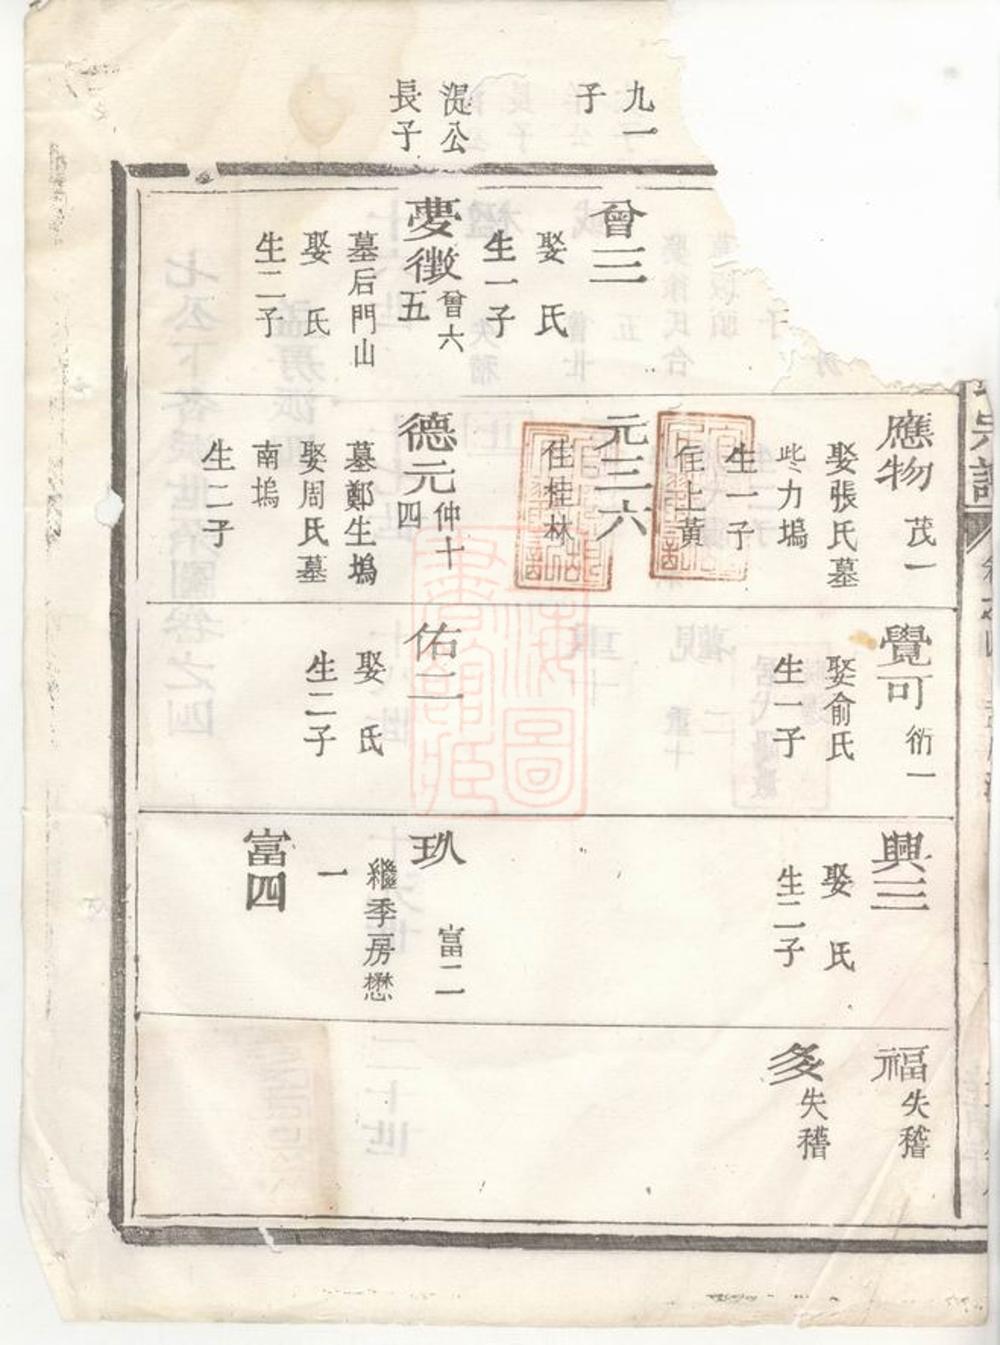 九一
子
湜公
長子
曾三
娶 氏
生一子
夢徵
曾六
五
墓后門山
娶 氏
生二子
應物 茂一
娶張氏墓
此力塢
生一子
住上黃
元三六
住桂林
德元
仲十
四
墓鄭生塢
娶周氏墓
南塢
生二子
覺可 衍一
娶俞氏
生一子
佑二
娶 氏
生二子
興三
娶 氏
生二子
玖 富二
繼季房懋
一
富四
福 失稽
多 失稽